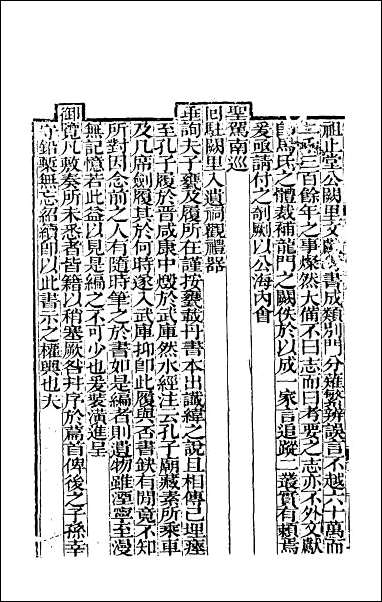 祖止堂公闕里文獻考書成類别門分雖繁辨誤言不越六十萬而
二千三百餘年之事燦然大備不曰志而曰考要之志亦不外文獻
自馬氏之體裁補龍門之闕佚於以成一家言追蹤二叢實有賴焉
爰亟請付之剞劂以公海内會
聖駕南巡
回駐闕里入遺祠觀禮器
垂詢夫子甕及履所在謹按甕載丹書本出讖緯之説且相傳已埋瘞
至孔子履於晋咸康中燬於武庫然水經注云孔子廟藏素所乘車
及几席劍履其於何時遂入武庫抑卽此履與否書缺有間竟不知
所對因念前之人有隨時筆之於書如是編者則遺物雖湮寧至漫
無記憶若此益以見是編之不可少也爰裝潢進呈
御覽凡敕奏所未悉者皆籍以稍塞厥咎并序於篇首俾後之子孫幸
守鉛槧無忘紹續卽以此書示之權輿也夫